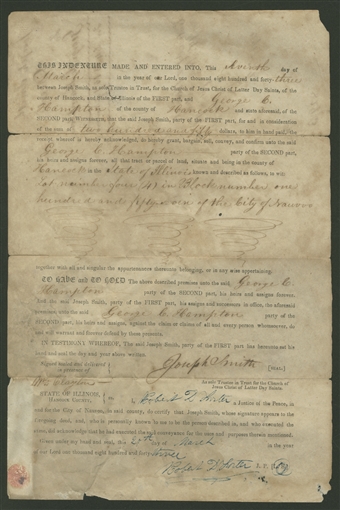 THIS INDENTURE MADE AND ENTERED INTO, This Ninth day of
March in the year of our Lord, one thousand eight hundred and forty-three
between Joseph Smith, as sole Trustee in Trust, for the Church of Jesus Christ of Latter Day Saints, of the
county of Hancock, and State of Illinois of the FIRST part, and George C.
Hampton of the county of Hancock and state aforesaid, of the
SECOND part; WITNESSETH, that the said party of the FIRST part, for and in consideration
of the sum of two hundred and fifty dollars, to him in hand paid, the
receipt whereof is hereby acknowledged, do hereby grant, bargain, sell, convey, and confirm unto the said
George C. Hampton party of the SECOND part,
his heirs and assigns forever, all that tract or parcel of land, situate and being in the county of
Hancock in the State of Illinois known and described as follows, to wit
Lot number four (4) in Block number one
hundred and fifty of the City of Nauvoo
together with all and singular the appurtenances thereunto belonging, or in any wise appertaining.
TO HAVE and TO HOLD The above described premises unto the said George C.
Hampton party of the SECOND part, his heirs and assigns forever.
And the said Joseph Smith, party of the FIRST part, his assigns and successors in office, the aforesaid
premises unto the said George C. Hampton party of the
SECOND part, his heirs and assigns, against the claim or claims of all and every person whomsoever, do
and will warrant and forever defend by these presents.
IN TESTIMONY WHEREOF, The said Joseph Smith, party of the FIRST part has hereunto set his
hand and seal the day and year above written.
Signed sealed and delivered
in presence of
Joseph Smith [SEAL.]
Wm Clayton
As sole Trustee in Trust for the Church of
Jesus Christ of Latter Day Saints
STATE OF ILLINOIS,
Hancock County,
Robert D. Foster a Justice of the Peace, in
and for the City of Nauvoo, in said county, do certify that Joseph Smith, whose signature appears to the
foregoing deed, and who is personally known to me to be the person described in, and who executed the
same, did acknowledge that he had executed the said conveyance for the uses and purposes therein mentioned.
Given under my hand and seal, this March
our Lord one thousand eight hundred and forty three
Robert D. Foster J. P.